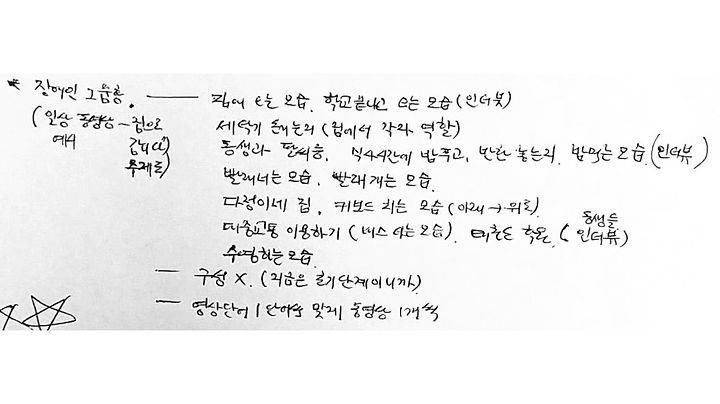 * 장애인 그룹홈. — 집에 오는 모습. 학교끝나고 오는 모습 (인터뷰)
(일상 동영상 - 집으로 세탁기 돌리는거 (집에서 각자 역할)
예4 갑니다 동생과 팔씨름. 식사시간에 밥푸고, 반찬 놓는거. 밥먹는 모습. (인터뷰)
주제로) 빨래너는 모습. 빨래개는 모습.
다정이네 집. 키보드 치는 모습 (아래→위로)
대중교통 이용하기 (버스 타는 모습). 태권도 학원. (동생들 인터뷰)
수영하는 모습.
— 구성 X. (지금은 초기단계이니까)
— 영상단어 1 단어에 맞게 동영상 1개씩